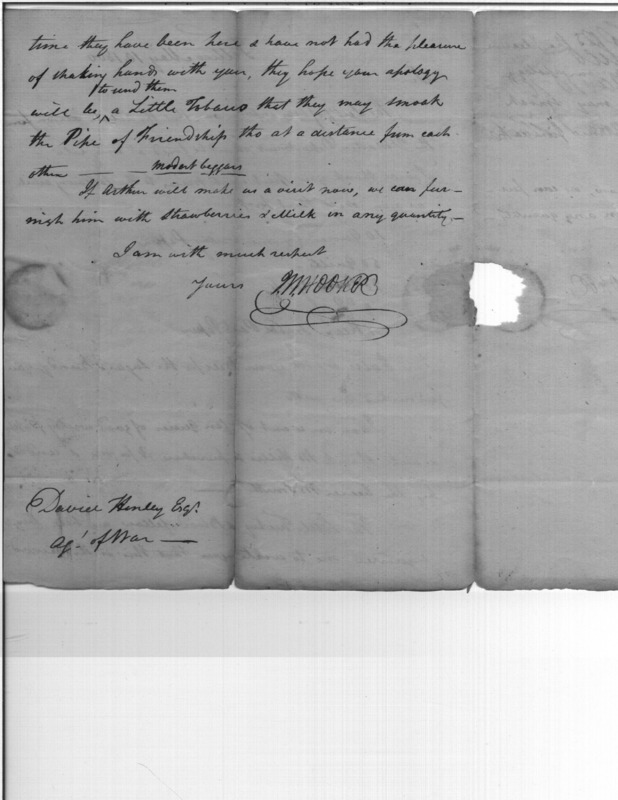 time they have been here & have not had the pleasure
of shaking hands with your, they hope your apology
to send them
will be, ^ a Little Tobacco that they may smoak
the Pipe of Friendship tho at a distance from each
other — — modest beggars
If Arthur will make us a visit now, we can fur-
nish him with strawberries & Milk in any quantity —
I am with much respect
Yours MHOOKER
David Henley Esqr.
Agt. of War —